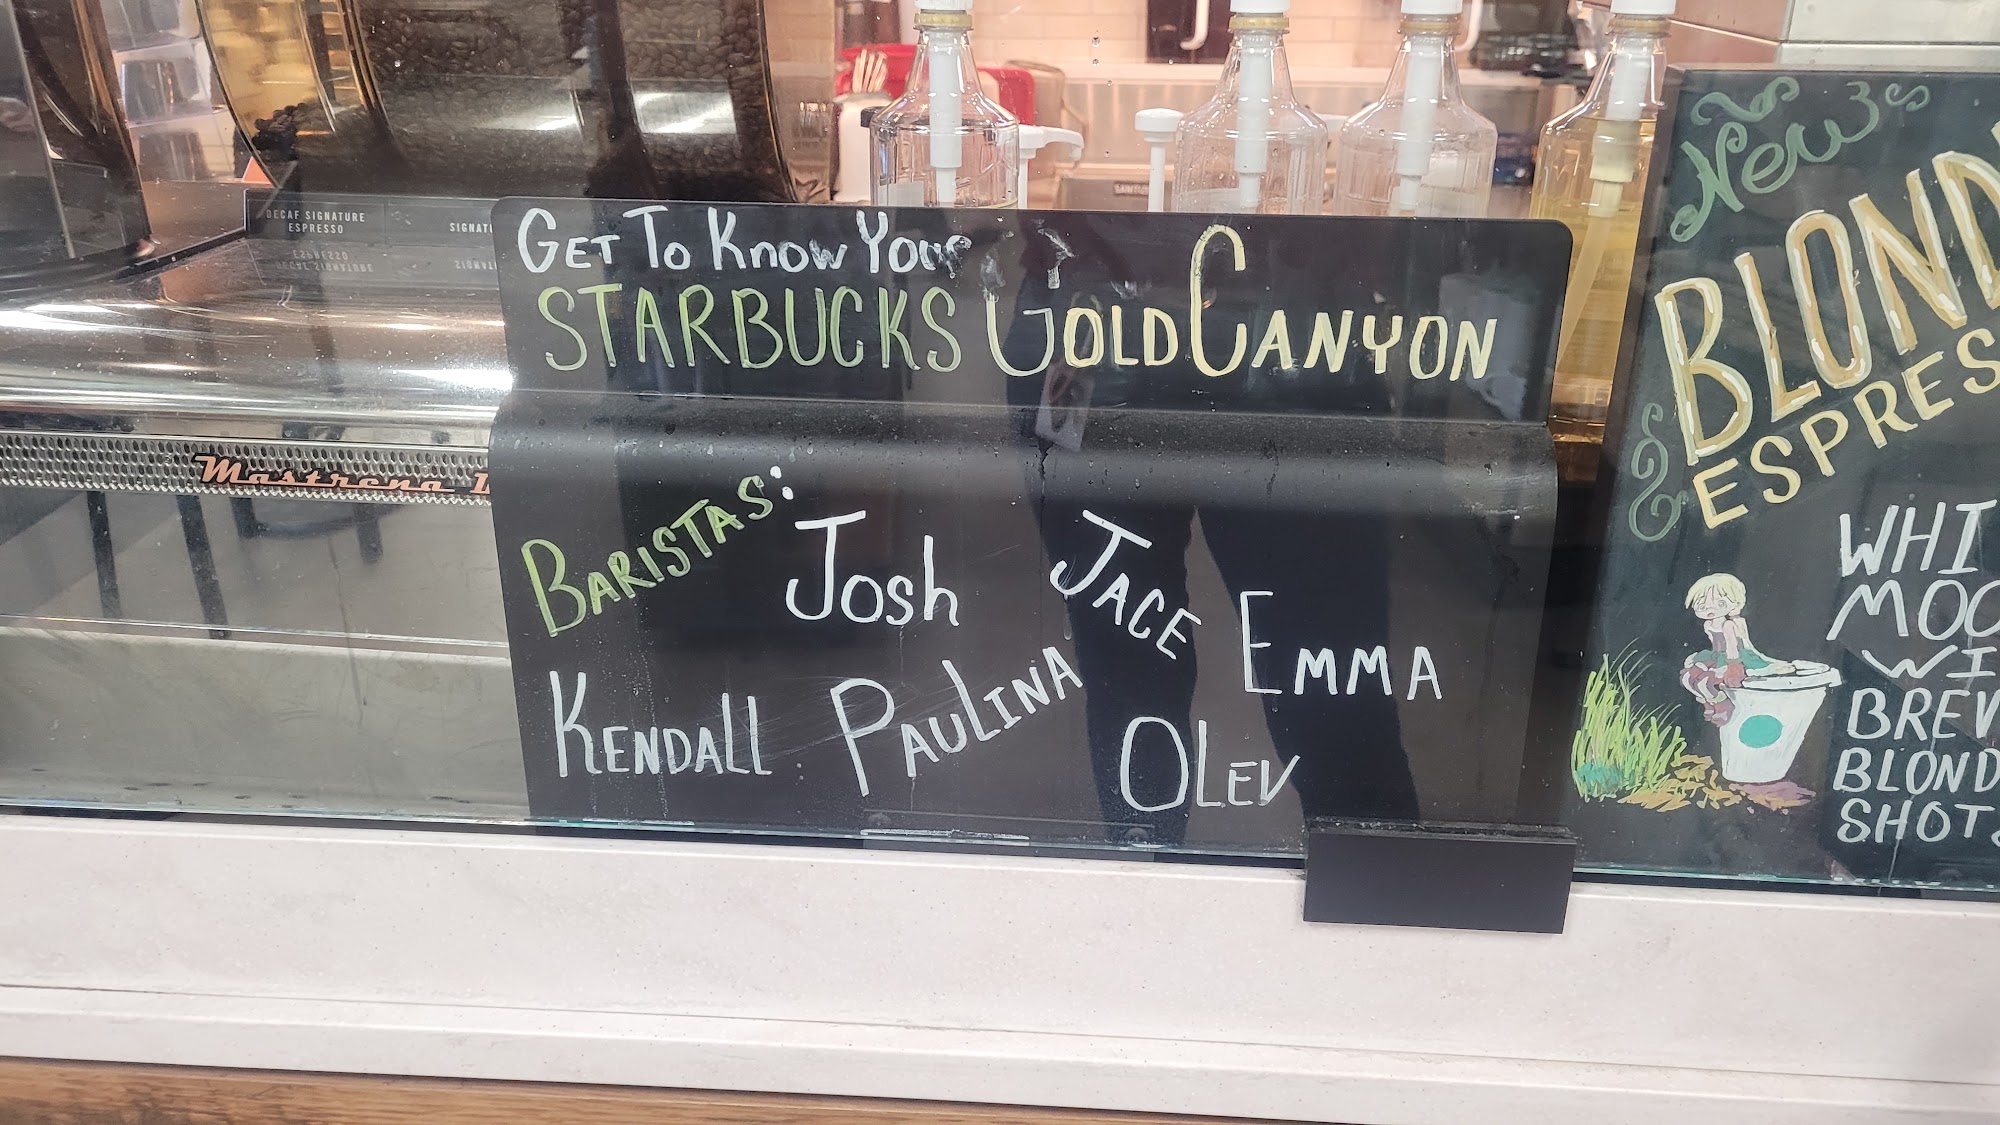 DECAF SIGNATURE
ESPRESSO
GET TO KNOW YOUR
STARBUCKS GOLD CANYON
Mastrena
BARISTAS:
Josh
JACE
EMMA
KENDALL
PAULINA
OLEV
New
BLOND
ESPRES
WHI
MOC
WI
BREV
BLOND
SHOTS